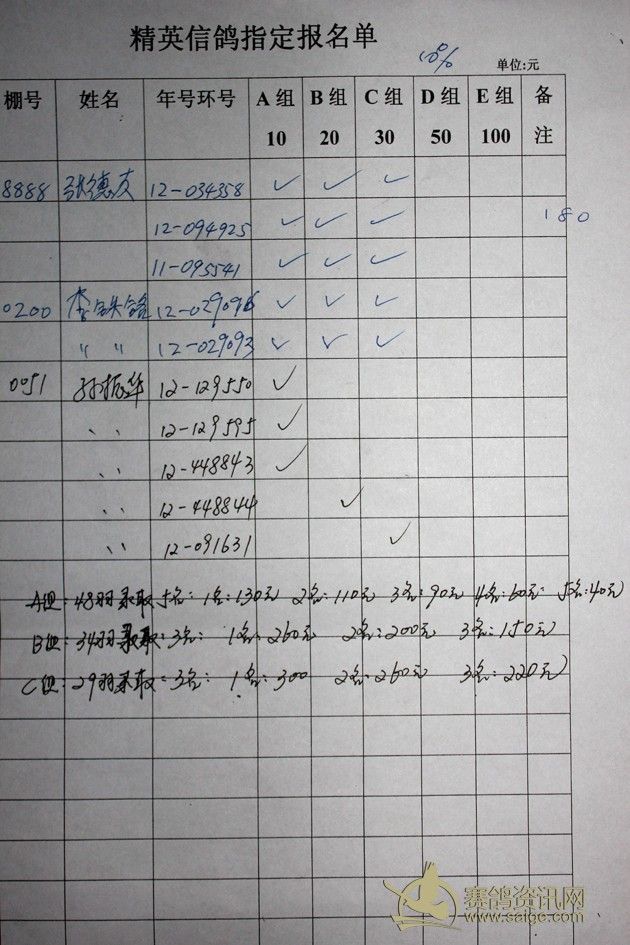 精英信鸽指定报名单
10%
单位:元
棚号 姓名 年号环号 A组 10 B组 20 C组 30 D组 50 E组 100 备注
8888 张德友 12-034358 ✓ ✓ ✓
12-094925 ✓ ✓ ✓ 180
11-095541 ✓ ✓ ✓
0200 李铁铭 12-029096 ✓ ✓ ✓
〃 〃 12-029093 ✓ ✓ ✓
0051 孙振华 12-129550 ✓
〃 12-129595 ✓
〃 12-448843 ✓
〃 12-448844 ✓
〃 12-091631 ✓
A组:48羽录取5名:1名:130元 2名:110元 3名:90元 4名:60元 5名:40元
B组:34羽录取:3名: 1名:260元 2名:200元 3名:150元
C组:29羽录取:3名: 1名:300 2名:260元 3名:220元
赛鸽资讯网
www.saige.com